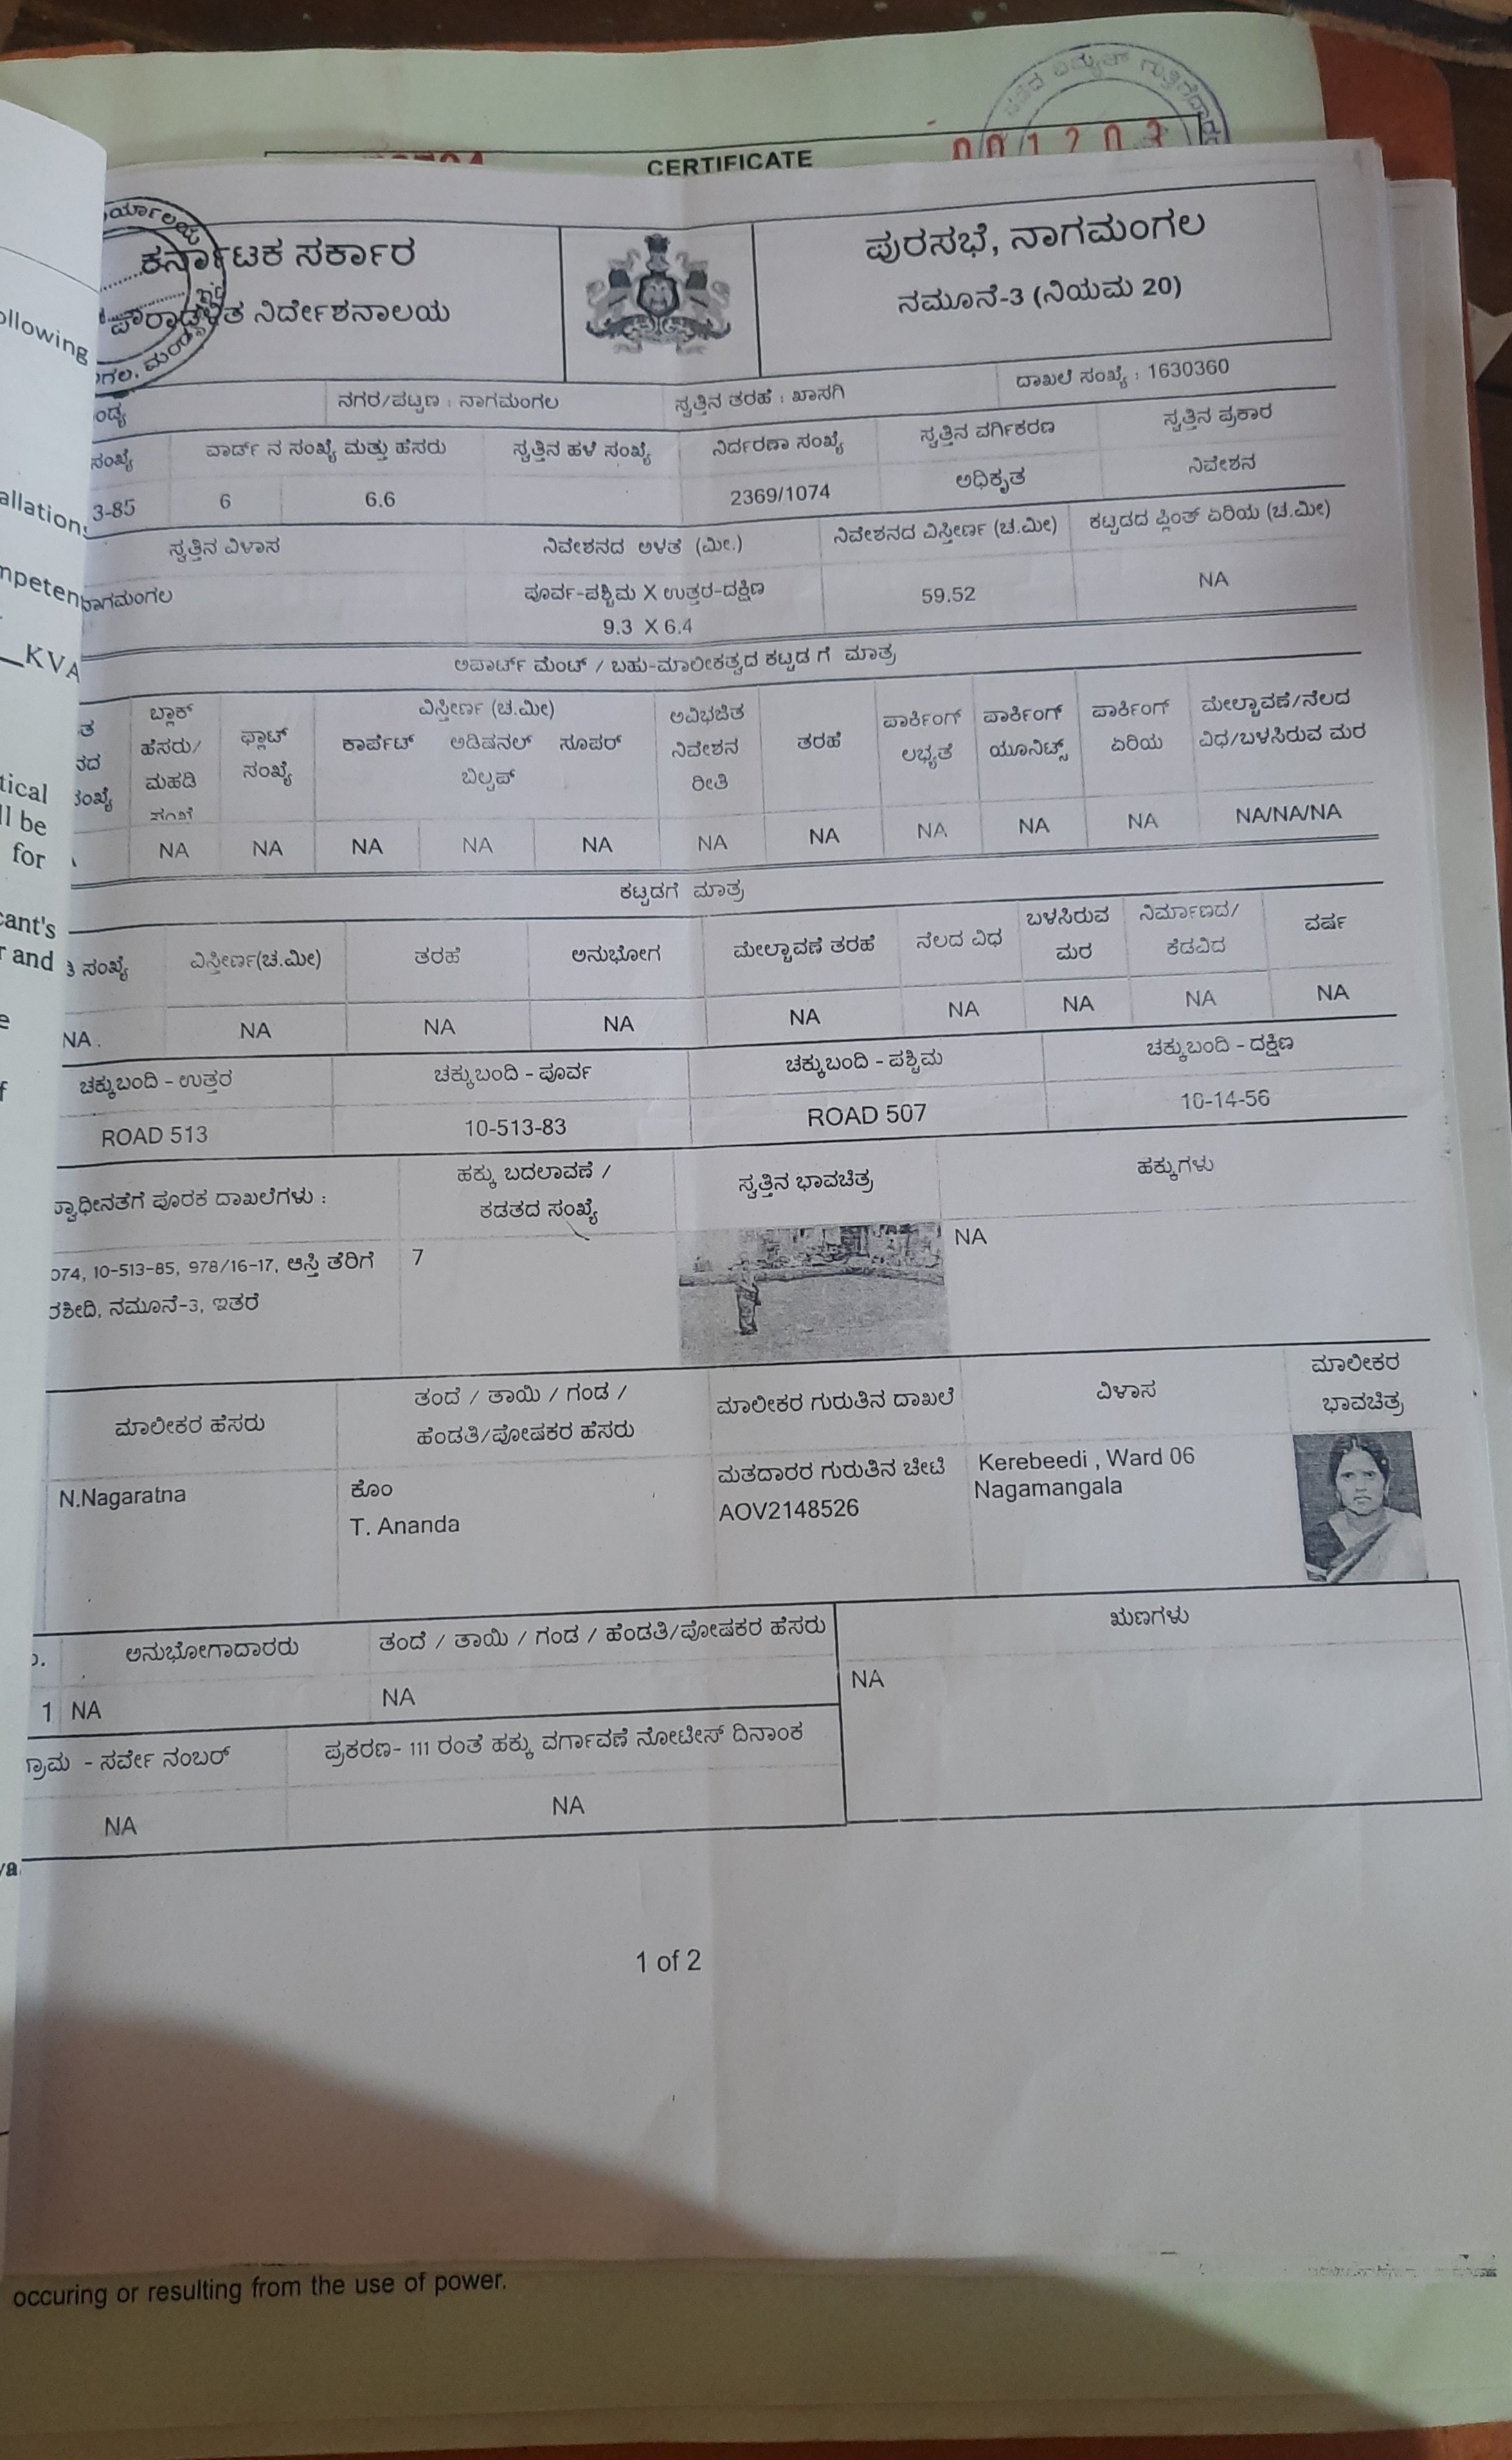 ವಿದ್ಯುತ್ ಗುತ್ತಿಗೆದಾರರ
CERTIFICATE
001203
ಕರ್ನಾಟಕ ಸರ್ಕಾರ
ಪೌರಾಡಳಿತ ನಿರ್ದೇಶನಾಲಯ
ಪುರಸಭೆ, ನಾಗಮಂಗಲ
ನಮೂನೆ-3 (ನಿಯಮ 20)
ನಗರ/ಪಟ್ಟಣ : ನಾಗಮಂಗಲ ಸ್ವತ್ತಿನ ತರಹೆ : ಖಾಸಗಿ ದಾಖಲೆ ಸಂಖ್ಯೆ : 1630360
ಸಂಖ್ಯೆ ವಾರ್ಡ್ ನ ಸಂಖ್ಯೆ ಮತ್ತು ಹೆಸರು ಸ್ವತ್ತಿನ ಹಳೆ ಸಂಖ್ಯೆ ನಿರ್ದರಣಾ ಸಂಖ್ಯೆ ಸ್ವತ್ತಿನ ವರ್ಗಿಕರಣ ಸ್ವತ್ತಿನ ಪ್ರಕಾರ
3-85 6 6.6 2369/1074 ಅಧಿಕೃತ ನಿವೇಶನ
ಸ್ವತ್ತಿನ ವಿಳಾಸ ನಿವೇಶನದ ಅಳತೆ (ಮೀ.) ನಿವೇಶನದ ವಿಸ್ತೀರ್ಣ (ಚ.ಮೀ) ಕಟ್ಟಡದ ಪ್ಲಿಂತ್ ಏರಿಯ (ಚ.ಮೀ)
ನಾಗಮಂಗಲ ಪೂರ್ವ-ಪಶ್ಚಿಮ X ಉತ್ತರ-ದಕ್ಷಿಣ 59.52 NA
9.3 X 6.4
ಅಪಾರ್ಟ್ ಮೆಂಟ್ / ಬಹು-ಮಾಲೀಕತ್ವದ ಕಟ್ಟಡ ಗೆ ಮಾತ್ರ
ಬ್ಲಾಕ್ ವಿಸ್ತೀರ್ಣ (ಚ.ಮೀ) ಅವಿಭಜಿತ ಪಾರ್ಕಿಂಗ್ ಪಾರ್ಕಿಂಗ್ ಪಾರ್ಕಿಂಗ್ ಮೇಲ್ಚಾವಣಿ/ನೆಲದ
ಹೆಸರು/ ಫ್ಲಾಟ್ ಕಾರ್ಪೆಟ್ ಅಡಿಷನಲ್ ಸೂಪರ್ ನಿವೇಶನ ತರಹೆ ಲಭ್ಯತೆ ಯೂನಿಟ್ಸ್ ಏರಿಯ ವಿಧ/ಬಳಸಿರುವ ಮರ
ಮಹಡಿ ಸಂಖ್ಯೆ ಬಿಲ್ಟಪ್ ರೀತಿ
NA NA NA NA NA NA NA NA NA NA NA/NA/NA
ಕಟ್ಟಡಗೆ ಮಾತ್ರ
ಸಂಖ್ಯೆ ವಿಸ್ತೀರ್ಣ(ಚ.ಮೀ) ತರಹೆ ಅನುಭೋಗ ಮೇಲ್ಚಾವಣೆ ತರಹೆ ನೆಲದ ವಿಧ ಬಳಸಿರುವ ನಿರ್ಮಾಣದ/ ವರ್ಷ
ಮರ ಕೆಡವಿದ
NA. NA NA NA NA NA NA NA NA
ಚಕ್ಕುಬಂದಿ - ಉತ್ತರ ಚಕ್ಕುಬಂದಿ - ಪೂರ್ವ ಚಕ್ಕುಬಂದಿ - ಪಶ್ಚಿಮ ಚಕ್ಕುಬಂದಿ - ದಕ್ಷಿಣ
ROAD 513 10-513-83 ROAD 507 10-14-56
ಸ್ವಾಧೀನತೆಗೆ ಪೂರಕ ದಾಖಲೆಗಳು : ಹಕ್ಕು ಬದಲಾವಣೆ / ಸ್ವತ್ತಿನ ಭಾವಚಿತ್ರ ಹಕ್ಕುಗಳು
ಕಡತದ ಸಂಖ್ಯೆ
074, 10-513-85, 978/16-17, ಆಸ್ತಿ ತೆರಿಗೆ 7 NA
ರಶೀದಿ, ನಮೂನೆ-3, ಇತರೆ
ಮಾಲೀಕರ ಹೆಸರು ತಂದೆ / ತಾಯಿ / ಗಂಡ / ಮಾಲೀಕರ ಗುರುತಿನ ದಾಖಲೆ ವಿಳಾಸ ಮಾಲೀಕರ
ಹೆಂಡತಿ/ಪೋಷಕರ ಹೆಸರು ಭಾವಚಿತ್ರ
N.Nagaratna ಕೊಂ ಮತದಾರರ ಗುರುತಿನ ಚೀಟಿ Kerebeedi , Ward 06
T. Ananda AOV2148526 Nagamangala
ಅನುಭೋಗಾದಾರರು ತಂದೆ / ತಾಯಿ / ಗಂಡ / ಹೆಂಡತಿ/ಪೋಷಕರ ಹೆಸರು ಋಣಗಳು
1 NA NA NA
ಗ್ರಾಮ - ಸರ್ವೇ ನಂಬರ್ ಪ್ರಕರಣ- 111 ರಂತೆ ಹಕ್ಕು ವರ್ಗಾವಣೆ ನೋಟೀಸ್ ದಿನಾಂಕ
NA NA
1 of 2
ollowing
allations
mpeten
KVA
tical
ll be
for
cant's
r and
occuring or resulting from the use of power.